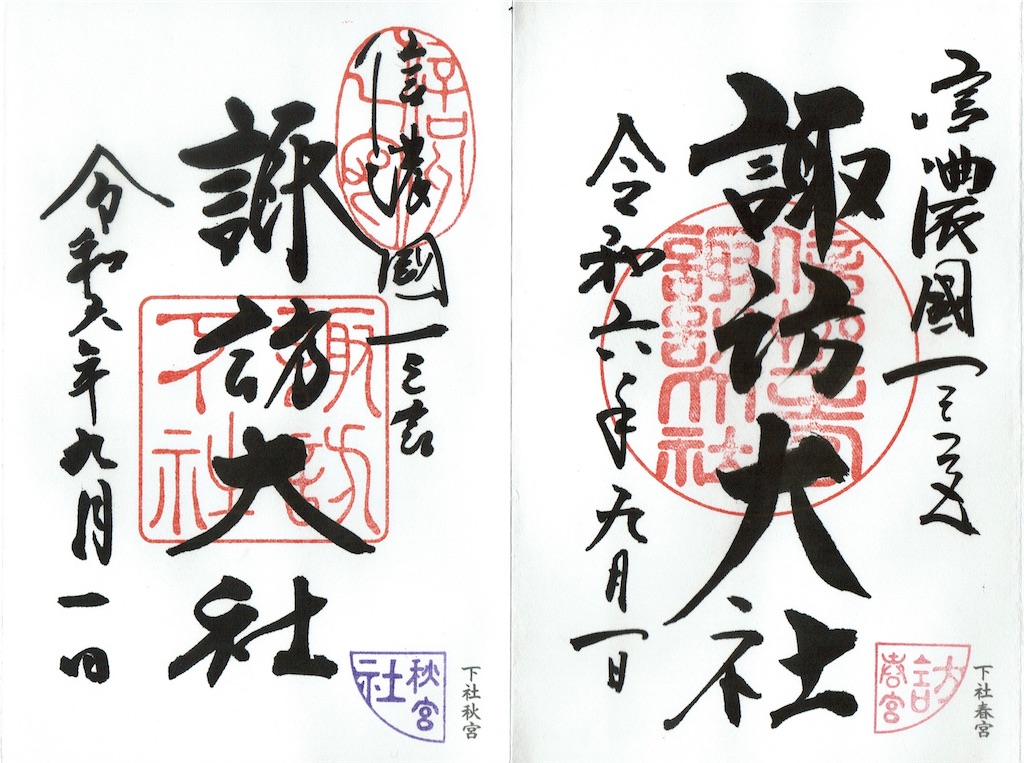 信濃國一之宮
諏訪大社
令和六年九月一日
諏訪
下社
秋宮
社
下社秋宮
信濃國一之宮
諏訪大社
令和六年九月一日
諏訪大社
訪
春宮
下社春宮